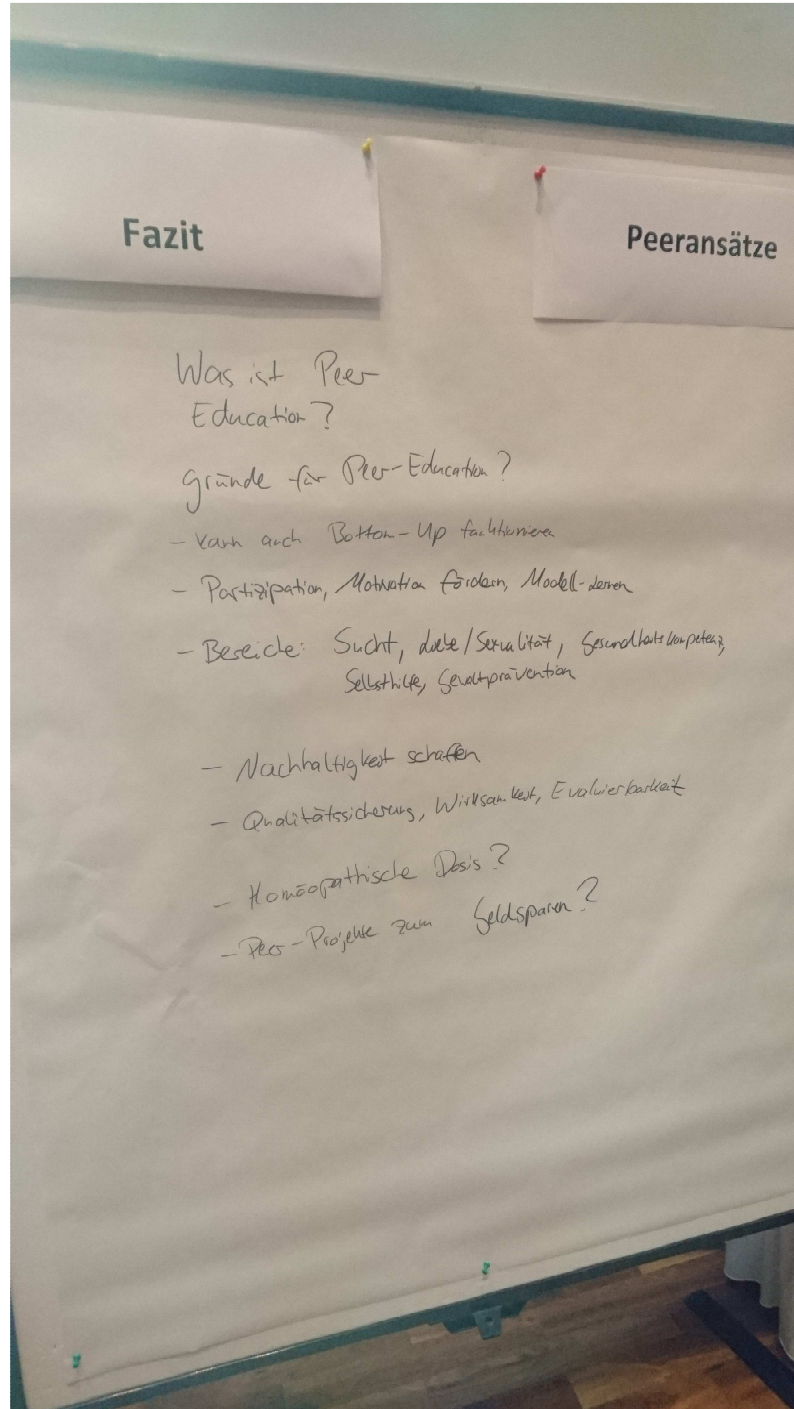 Fazit
Peeransätze
Was ist Peer
Education?
Gründe für Peer-Education?
- Kann auch Bottom-Up funktionieren
- Partizipation, Motivation fördern, Modell-Lernen
- Bereiche: Sucht, Liebe/Sexualität, Gesundheitskompetenz,
Selbsthilfe, Gewaltprävention
- Nachhaltigkeit schaffen
- Qualitätssicherung, Wirksamkeit, Evaluierbarkeit
- Homöopathische Dosis?
- Peer-Projekte zum Geldsparen?